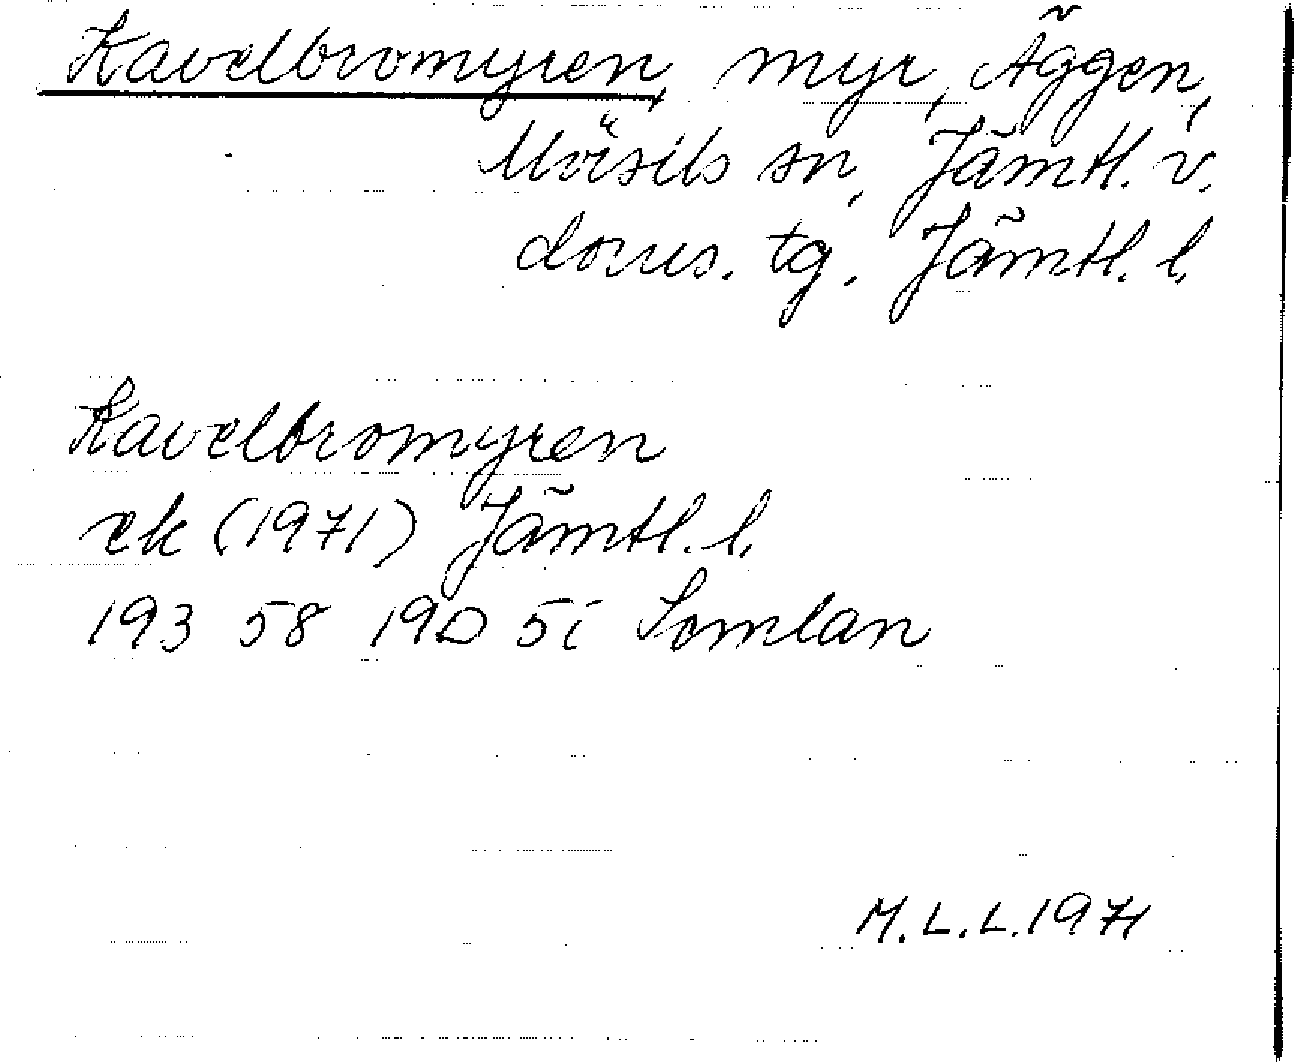 Kavelbromyren, myr, Äggen,
Mörsils sn, Jämtl. v.
doms. tg. Jämtl. l.
Kavelbromyren
ek (1971) Jämtl. l.
193 58 19D 5i Somlan
M.L.L. 1971